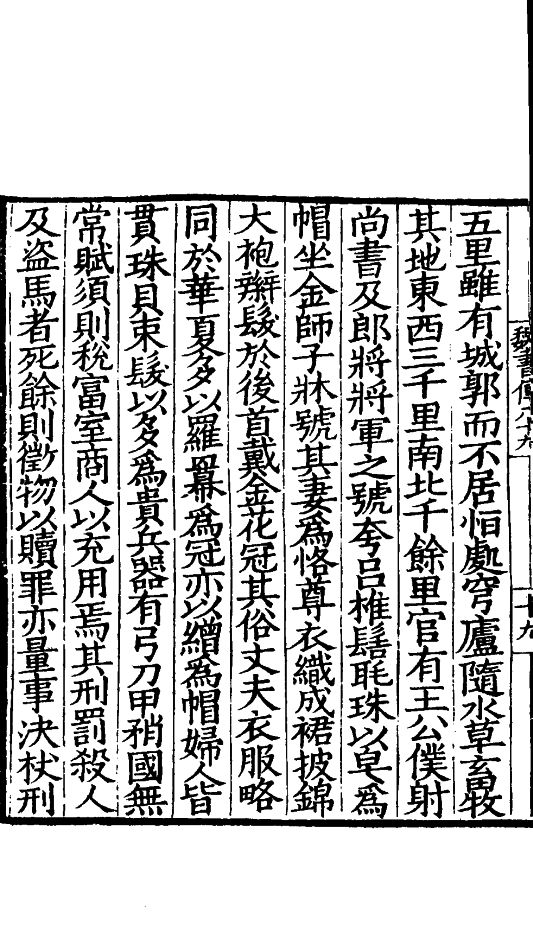 魏書傳八十九
十九
五里雖有城郭而不居恒處穹廬隨水草畜牧
其地東西三千里南北千餘里官有王公僕射
尚書及郎將將軍之號夸呂椎髻毦珠以皁為
帽坐金師子牀號其妻為恪尊衣織成裙披錦
大袍辮髮於後首戴金花冠其俗丈夫衣服略
同於華夏多以羅羃為冠亦以繒為帽婦人皆
貫珠貝束髮以多為貴兵器有弓刀甲矟國無
常賦須則稅富室商人以充用焉其刑罰殺人
及盜馬者死餘則徵物以贖罪亦量事決杖刑